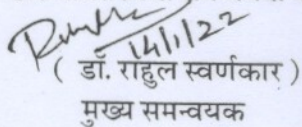 14/1/22
( डॉ. राहुल स्वर्णकार )
मुख्य समन्वयक